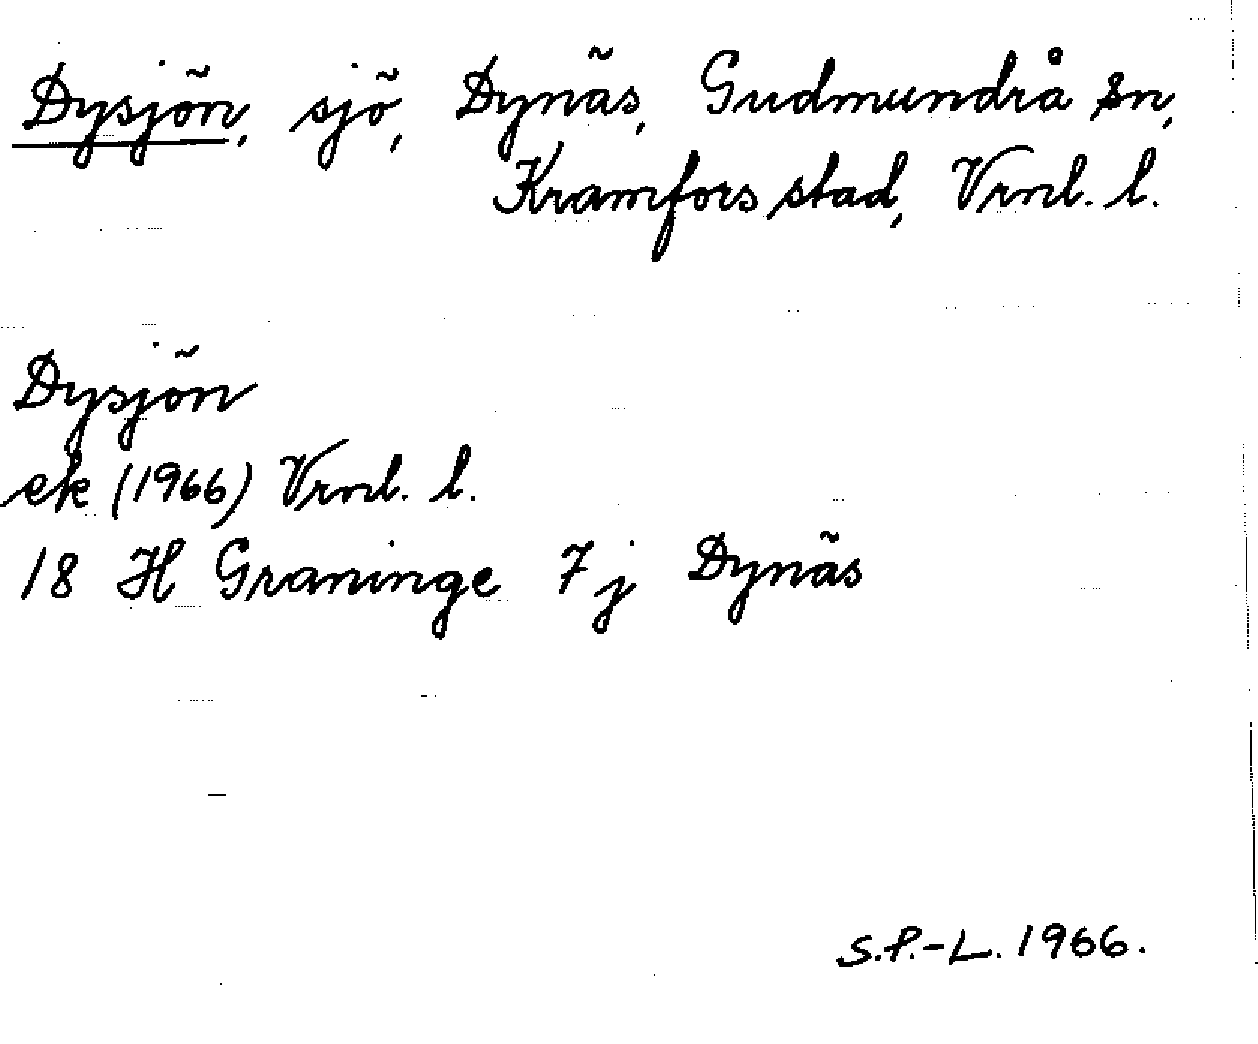 Dysjön, sjö, Dynäs, Gudmundrå sn,
Kramfors stad, Vrnl. l.
Dysjön
ek (1966) Vrnl. l.
18 H Graninge 7 j Dynäs
S.P.-L. 1966.